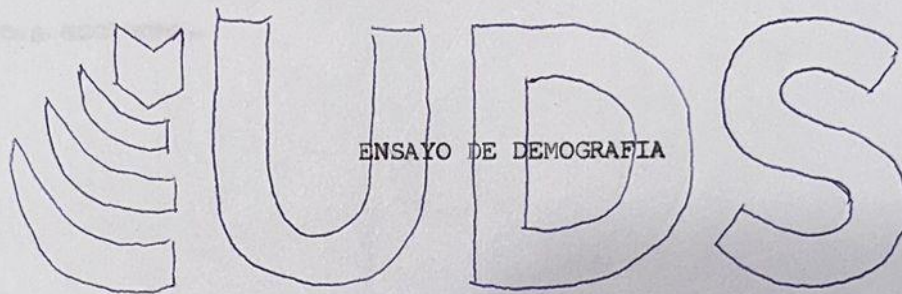 UDS
ENSAYO DE DEMOGRAFIA